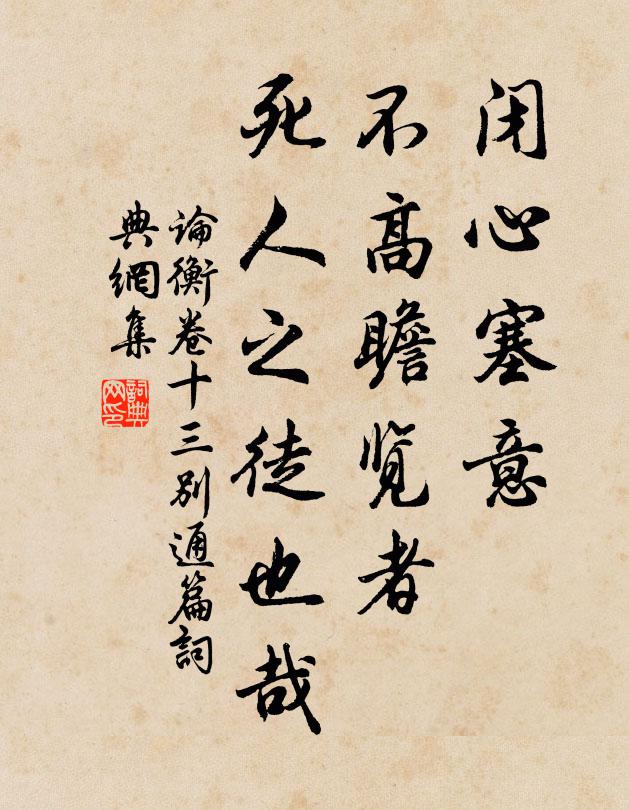 闭心塞意
不高瞻览者
死人之徒也哉
論衡卷十三别通篇詞
典網集
詞典
网印